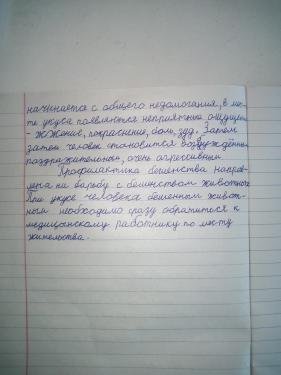 начинается с общего недомогания, в мес-
те укуса появляются неприятные ощущен
- жжение, покраснение, боль, зуд. Затем
затем человек становится возбуждённым
раздражительным, очень агрессивным
Профилактика бешенства направ-
лена на борьбу с бешенством животного
При укусе человека бешенным живот-
ным необходимо сразу обратиться к
медицинскому работнику по месту
жительства.